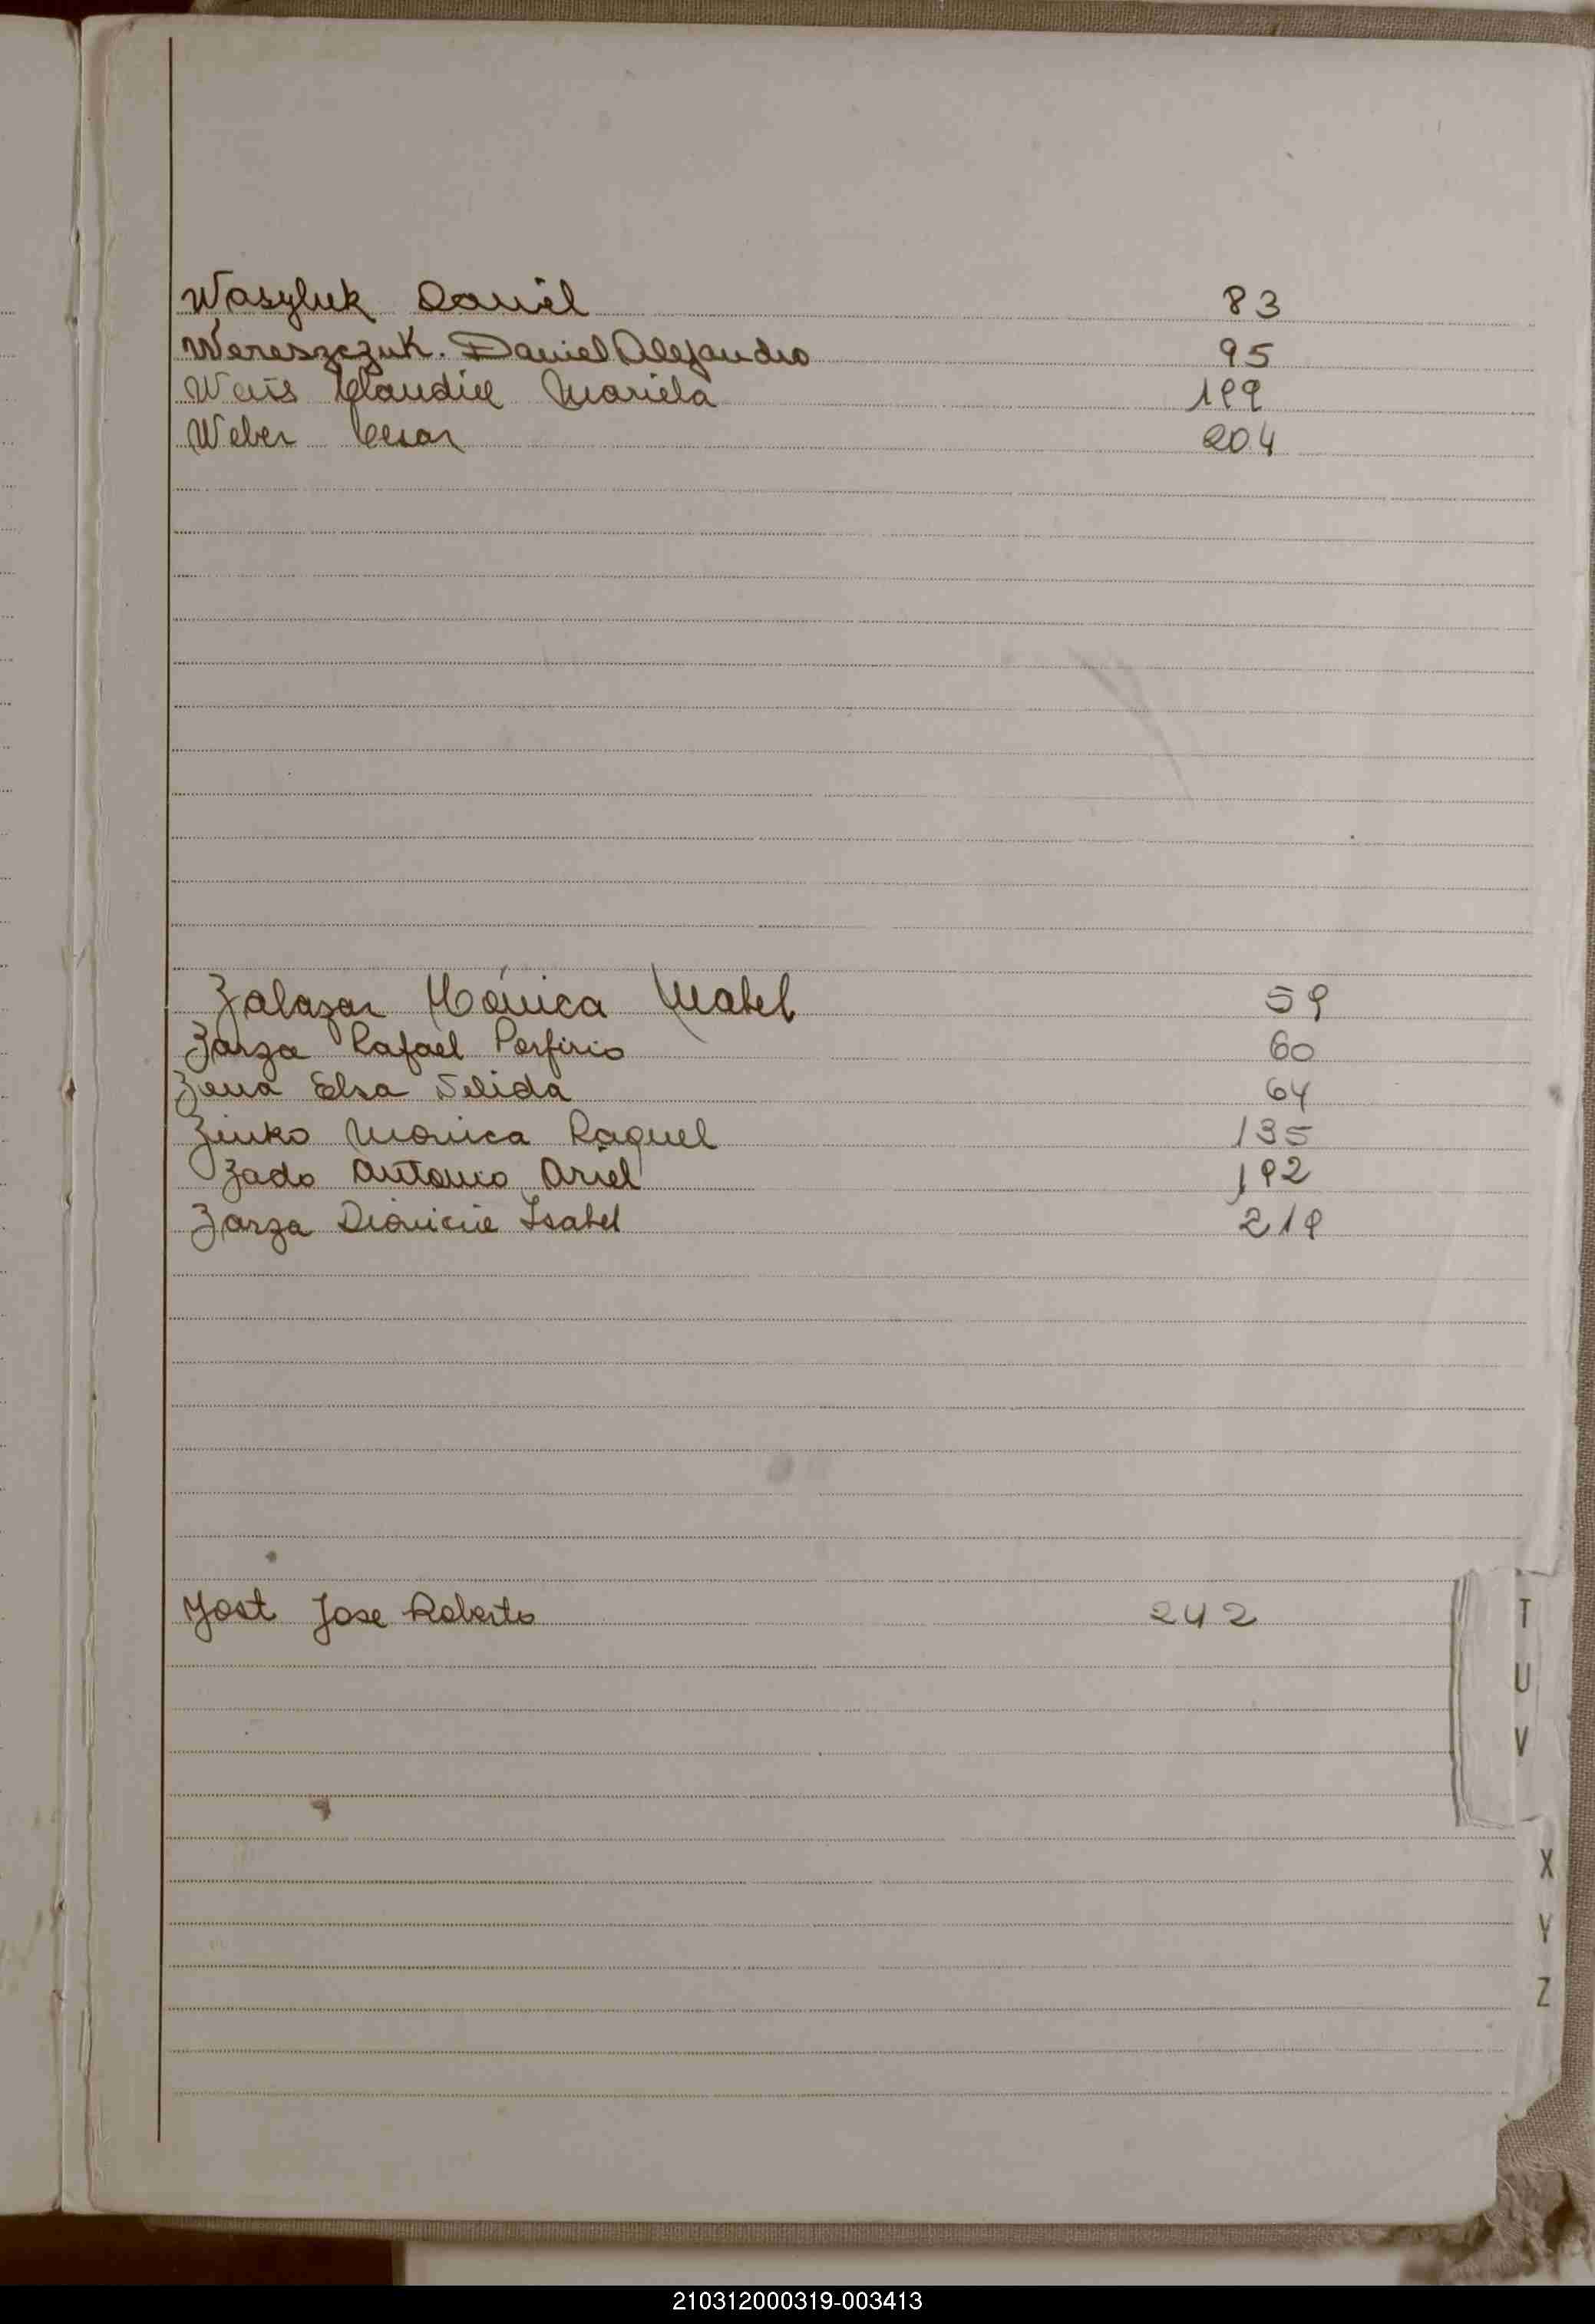 Wasyluk Daniel 83
Wereszczuk. Daniel Alejandro 95
Weis Claudia Mariela 199
Weber Cesar 204
Zalazar Mónica Mabel 59
Zarza Rafael Porfirio 60
Zena Elsa Selida 64
Zinko Monica Raquel 135
Zado Antonio Ariel 192
Zarza Dionicia Isabel 219
Yost Jose Roberto 242
T
U
V
X
Y
Z
210312000319-003413